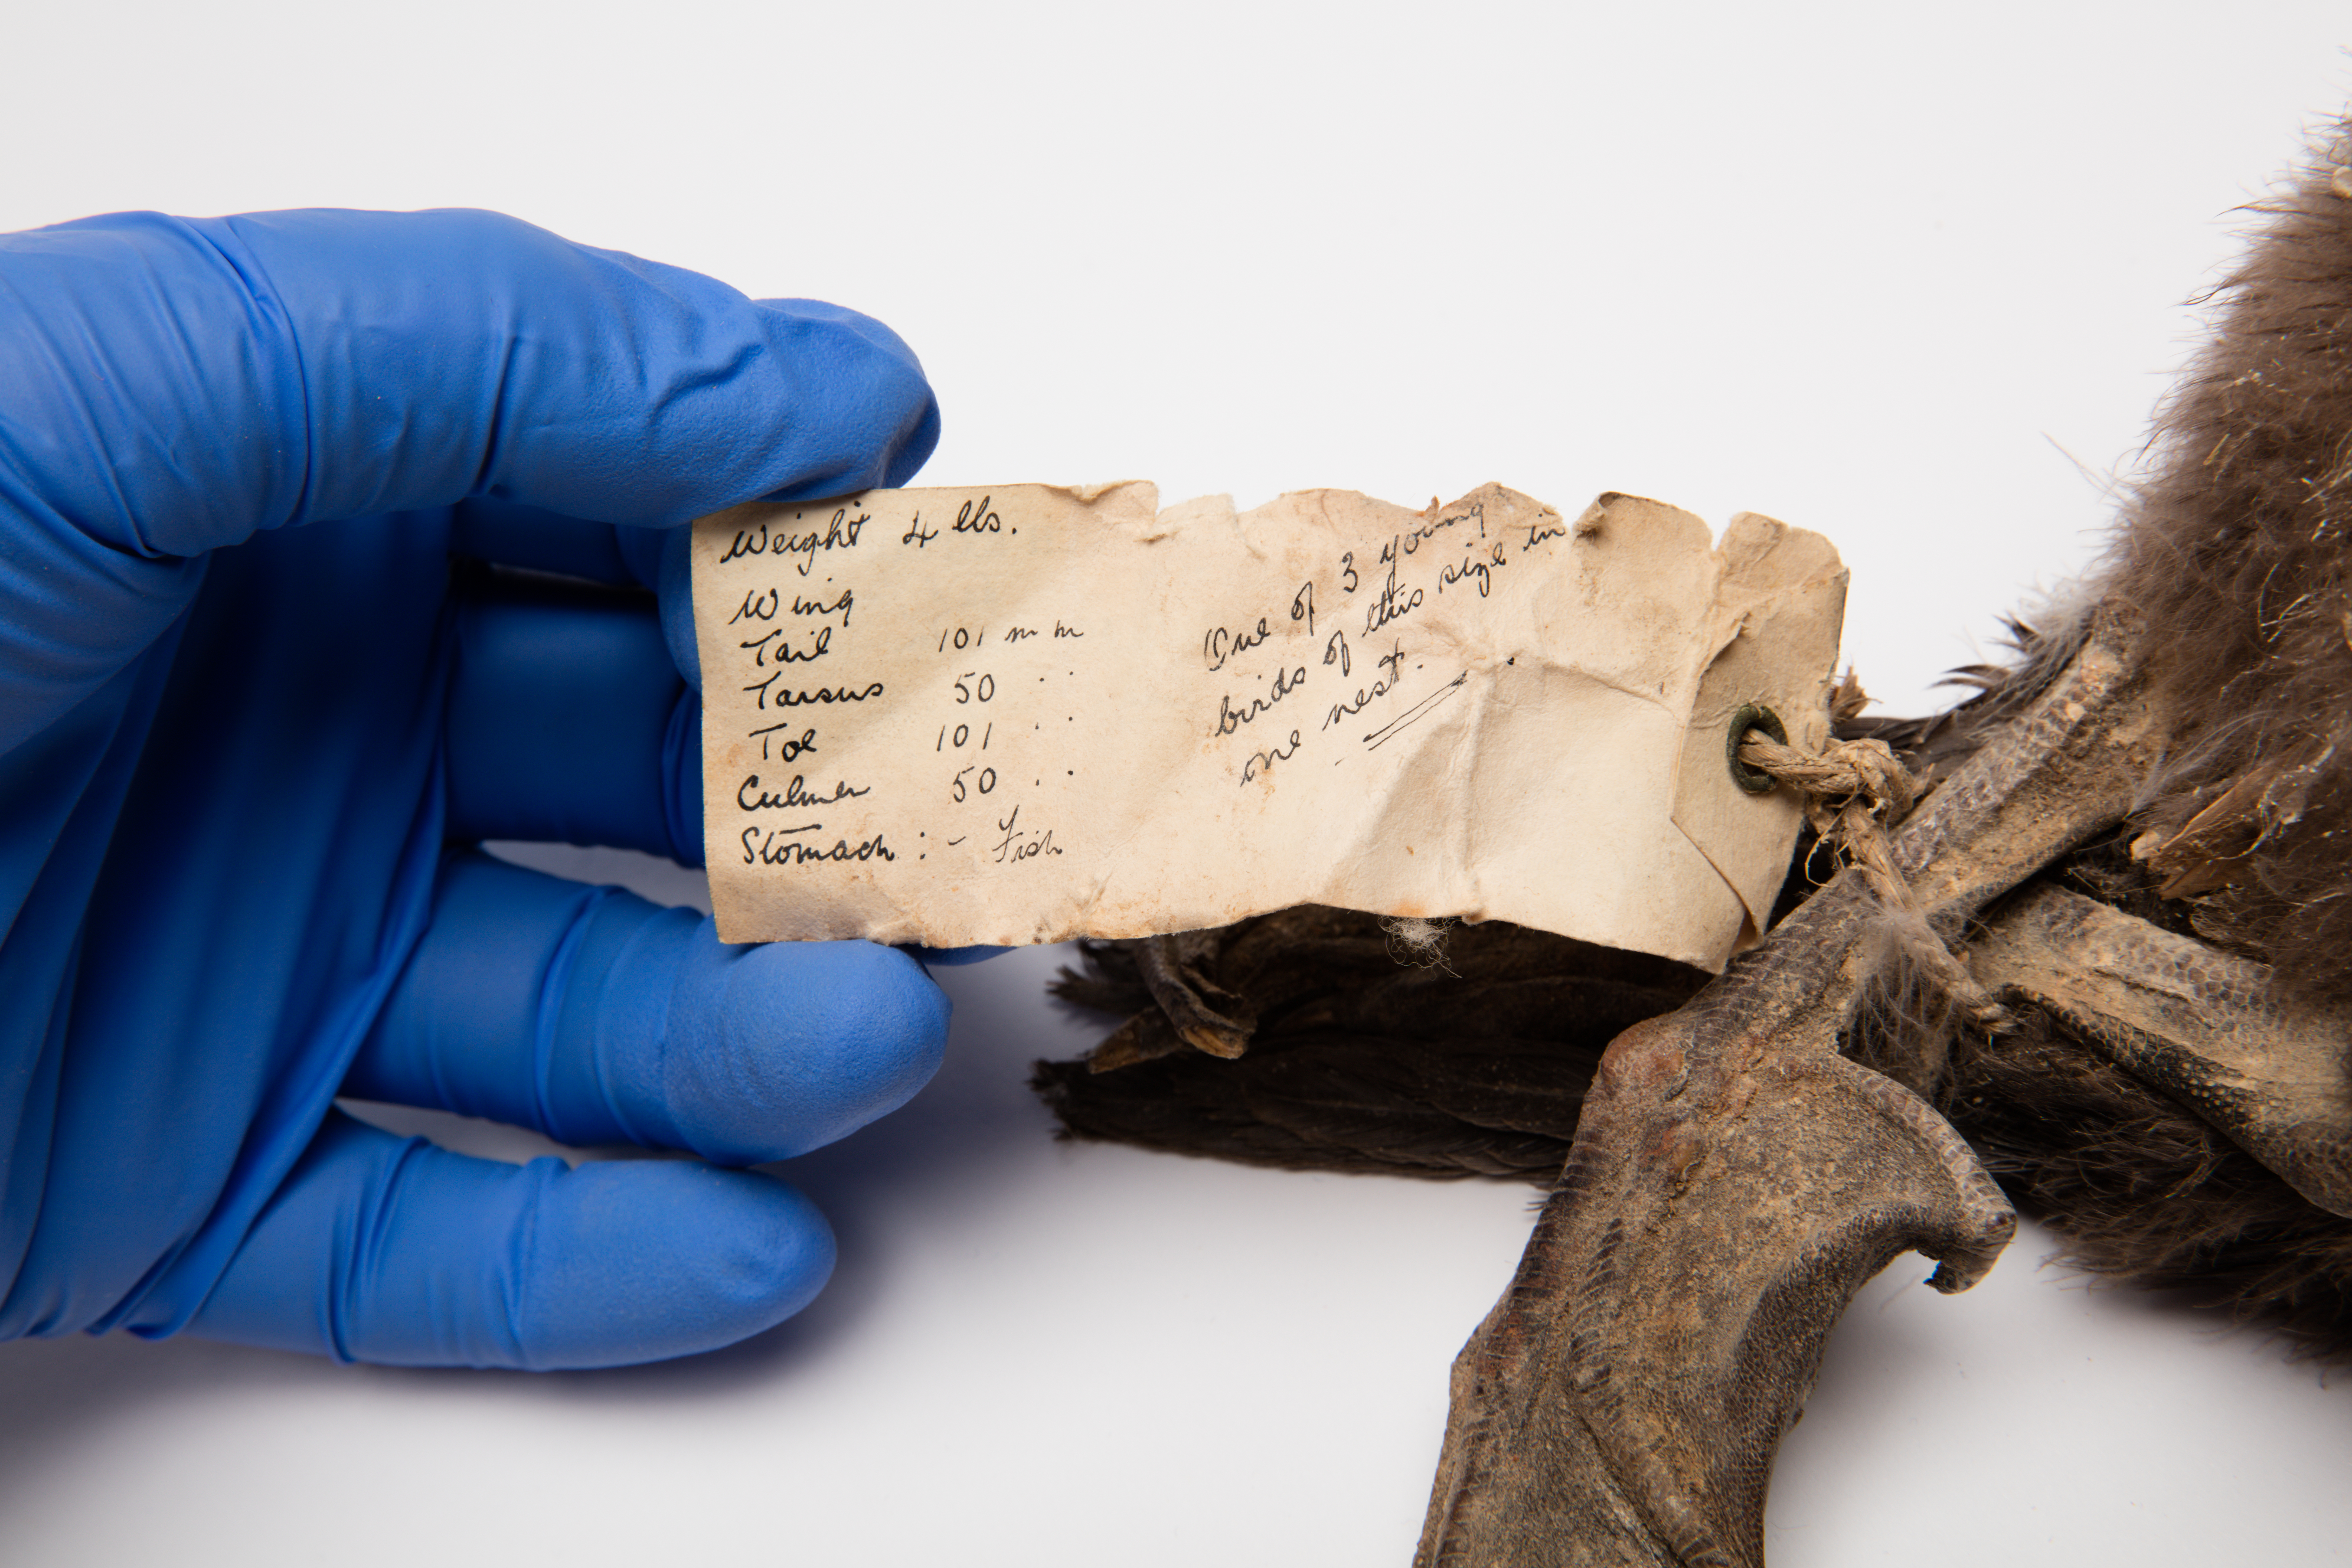 Weight 4 lbs.
Wing
Tail 101 mm
Tarsus 50 " "
Toe 101 " "
Culmen 50 " "
Stomach : - Fish
One of 3 young
birds of this size in
one nest.